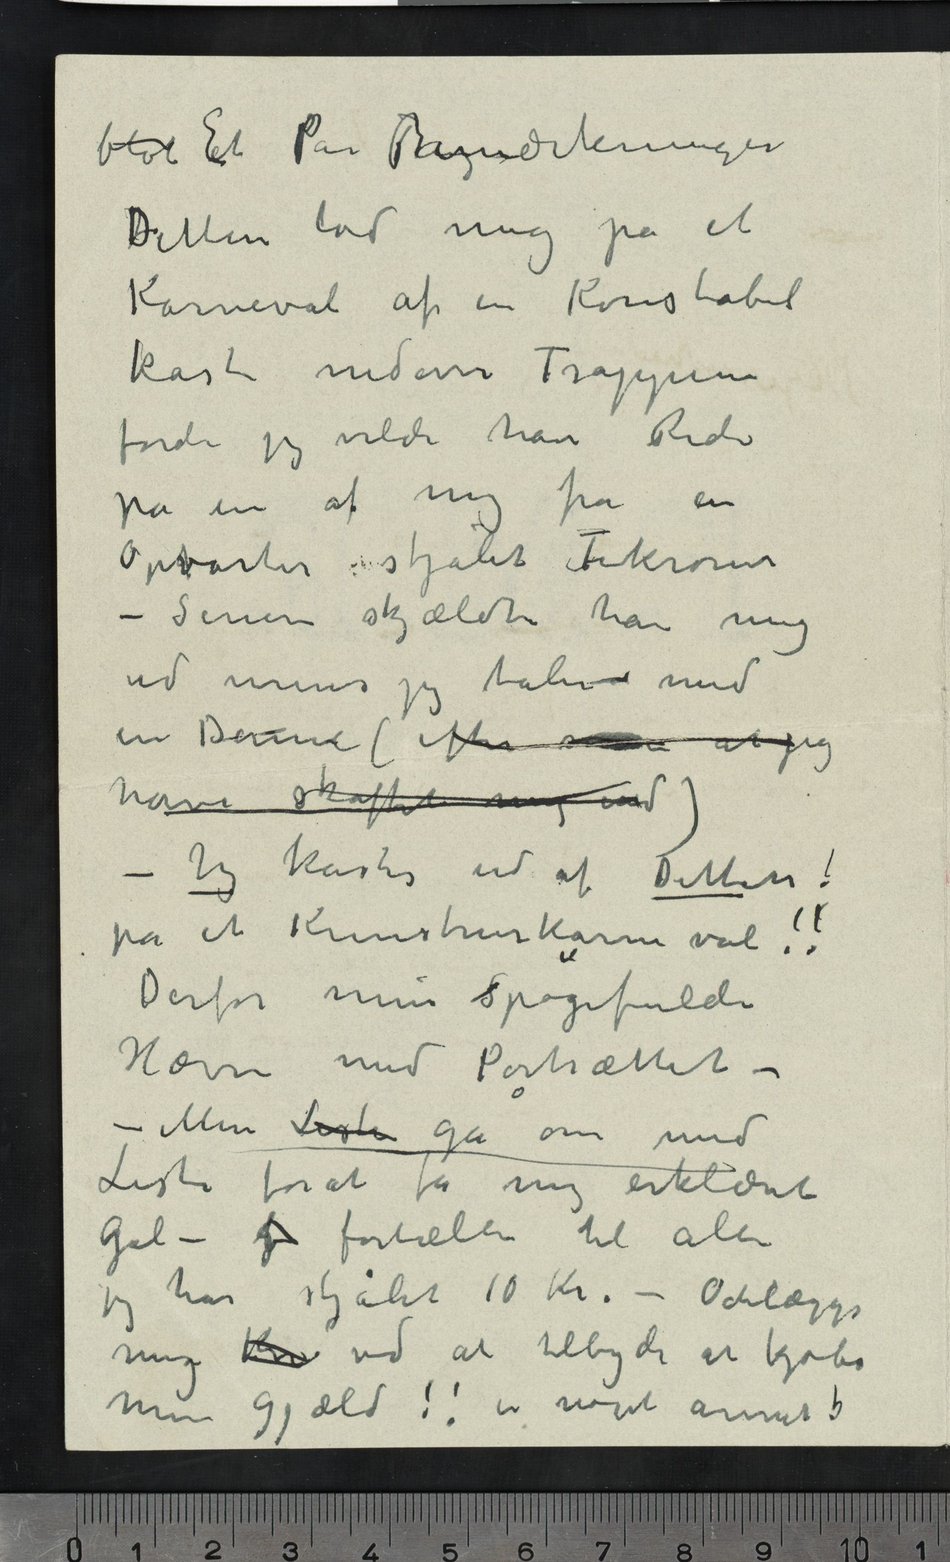 blot Et Par Bemærkninger
Ditten lod mig på et
Karneval af en Konstabel
kaste nedover Trappene
fordi jeg vilde have Rede
på en af mig fra en
Opvarter stjålet Tikroner
– Senere skjældte han mig
ud mens jeg taler med
en Dame (efter at jeg
have skaffet mig ind)
– Jeg kastes ud af Ditten!
på et Kunstnerkarneval!!
Derfor min Spøgefulde
Hævn med Portrættet –
– Men Liste gå om med
Liste forat få mig erklæret
gal – fortælle til alle
jeg har stjålet 10 Kr. – Ødelægge
mig ved at tilbyde at kjøbe
min Gjæld!! er noget annet!
0 1 2 3 4 5 6 7 8 9 10 1